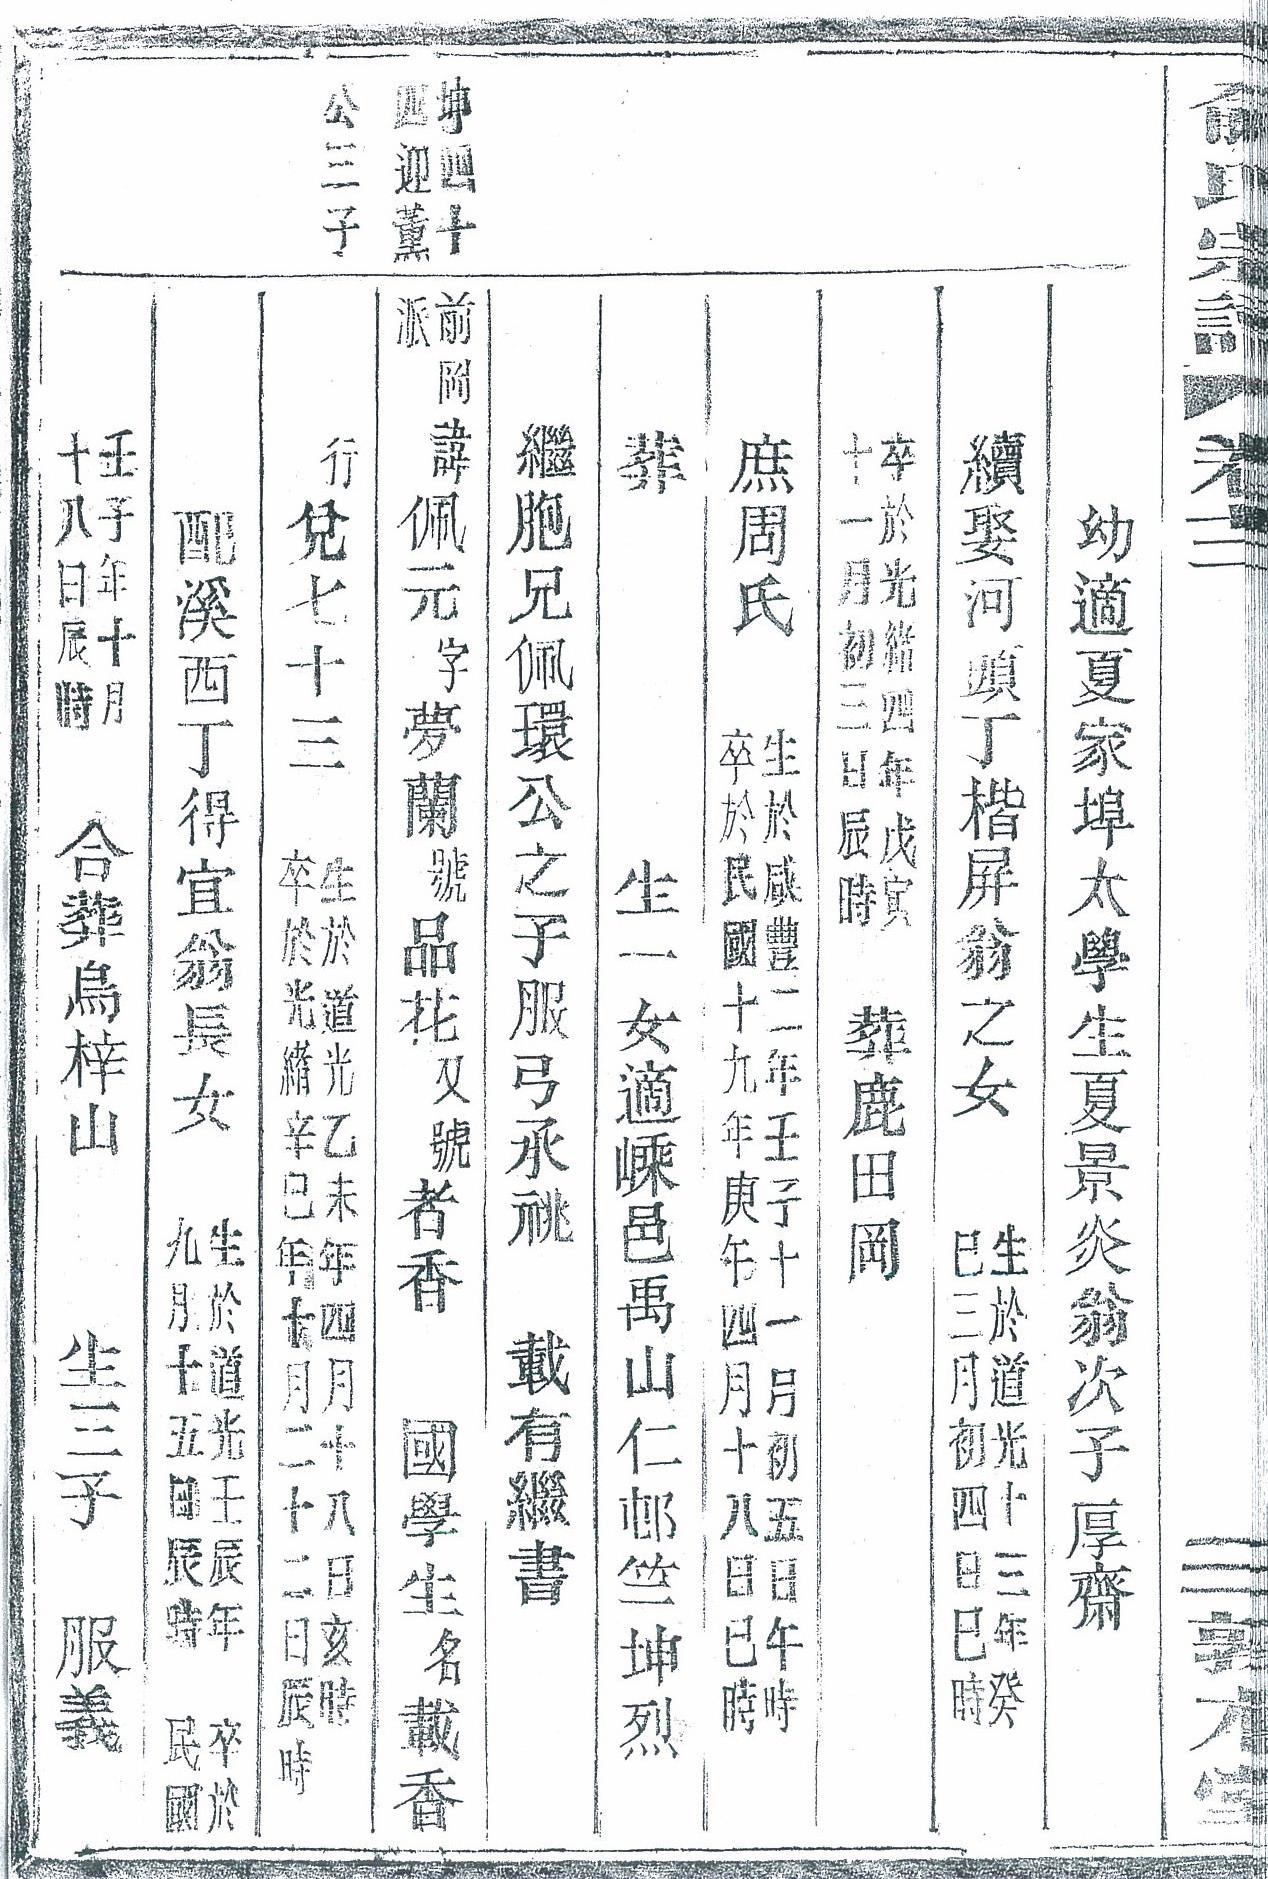 俞氏宗譜 卷二 三 敦本堂
幼適夏家埠太學生夏景炎翁次子厚齋
續娶河頭丁楷屏翁之女 生於道光十三年癸
巳三月初四日巳時
卒於光緒四年戊寅
十一月初三日辰時 葬鹿田岡
庶周氏 生於咸豐二年壬子十一月初五日午時
卒於民國十九年庚午四月十八日巳時
葬 生一女適嵊邑禹山仁邨竺坤烈
繼胞兄佩環公之子服弓承祧 載有繼書
坤四十
四迎薰
公三子
前岡
派 諱佩元字夢蘭號品花又號者香 國學生名載香
行兌七十三 生於道光乙未年四月十八日亥時
卒於光緒辛巳年十月二十二日辰時
配溪西丁得宜翁長女 生於道光壬辰年
九月十五日辰時 卒於
民國
壬子年十月
十八日辰時 合葬烏梓山 生三子 服義